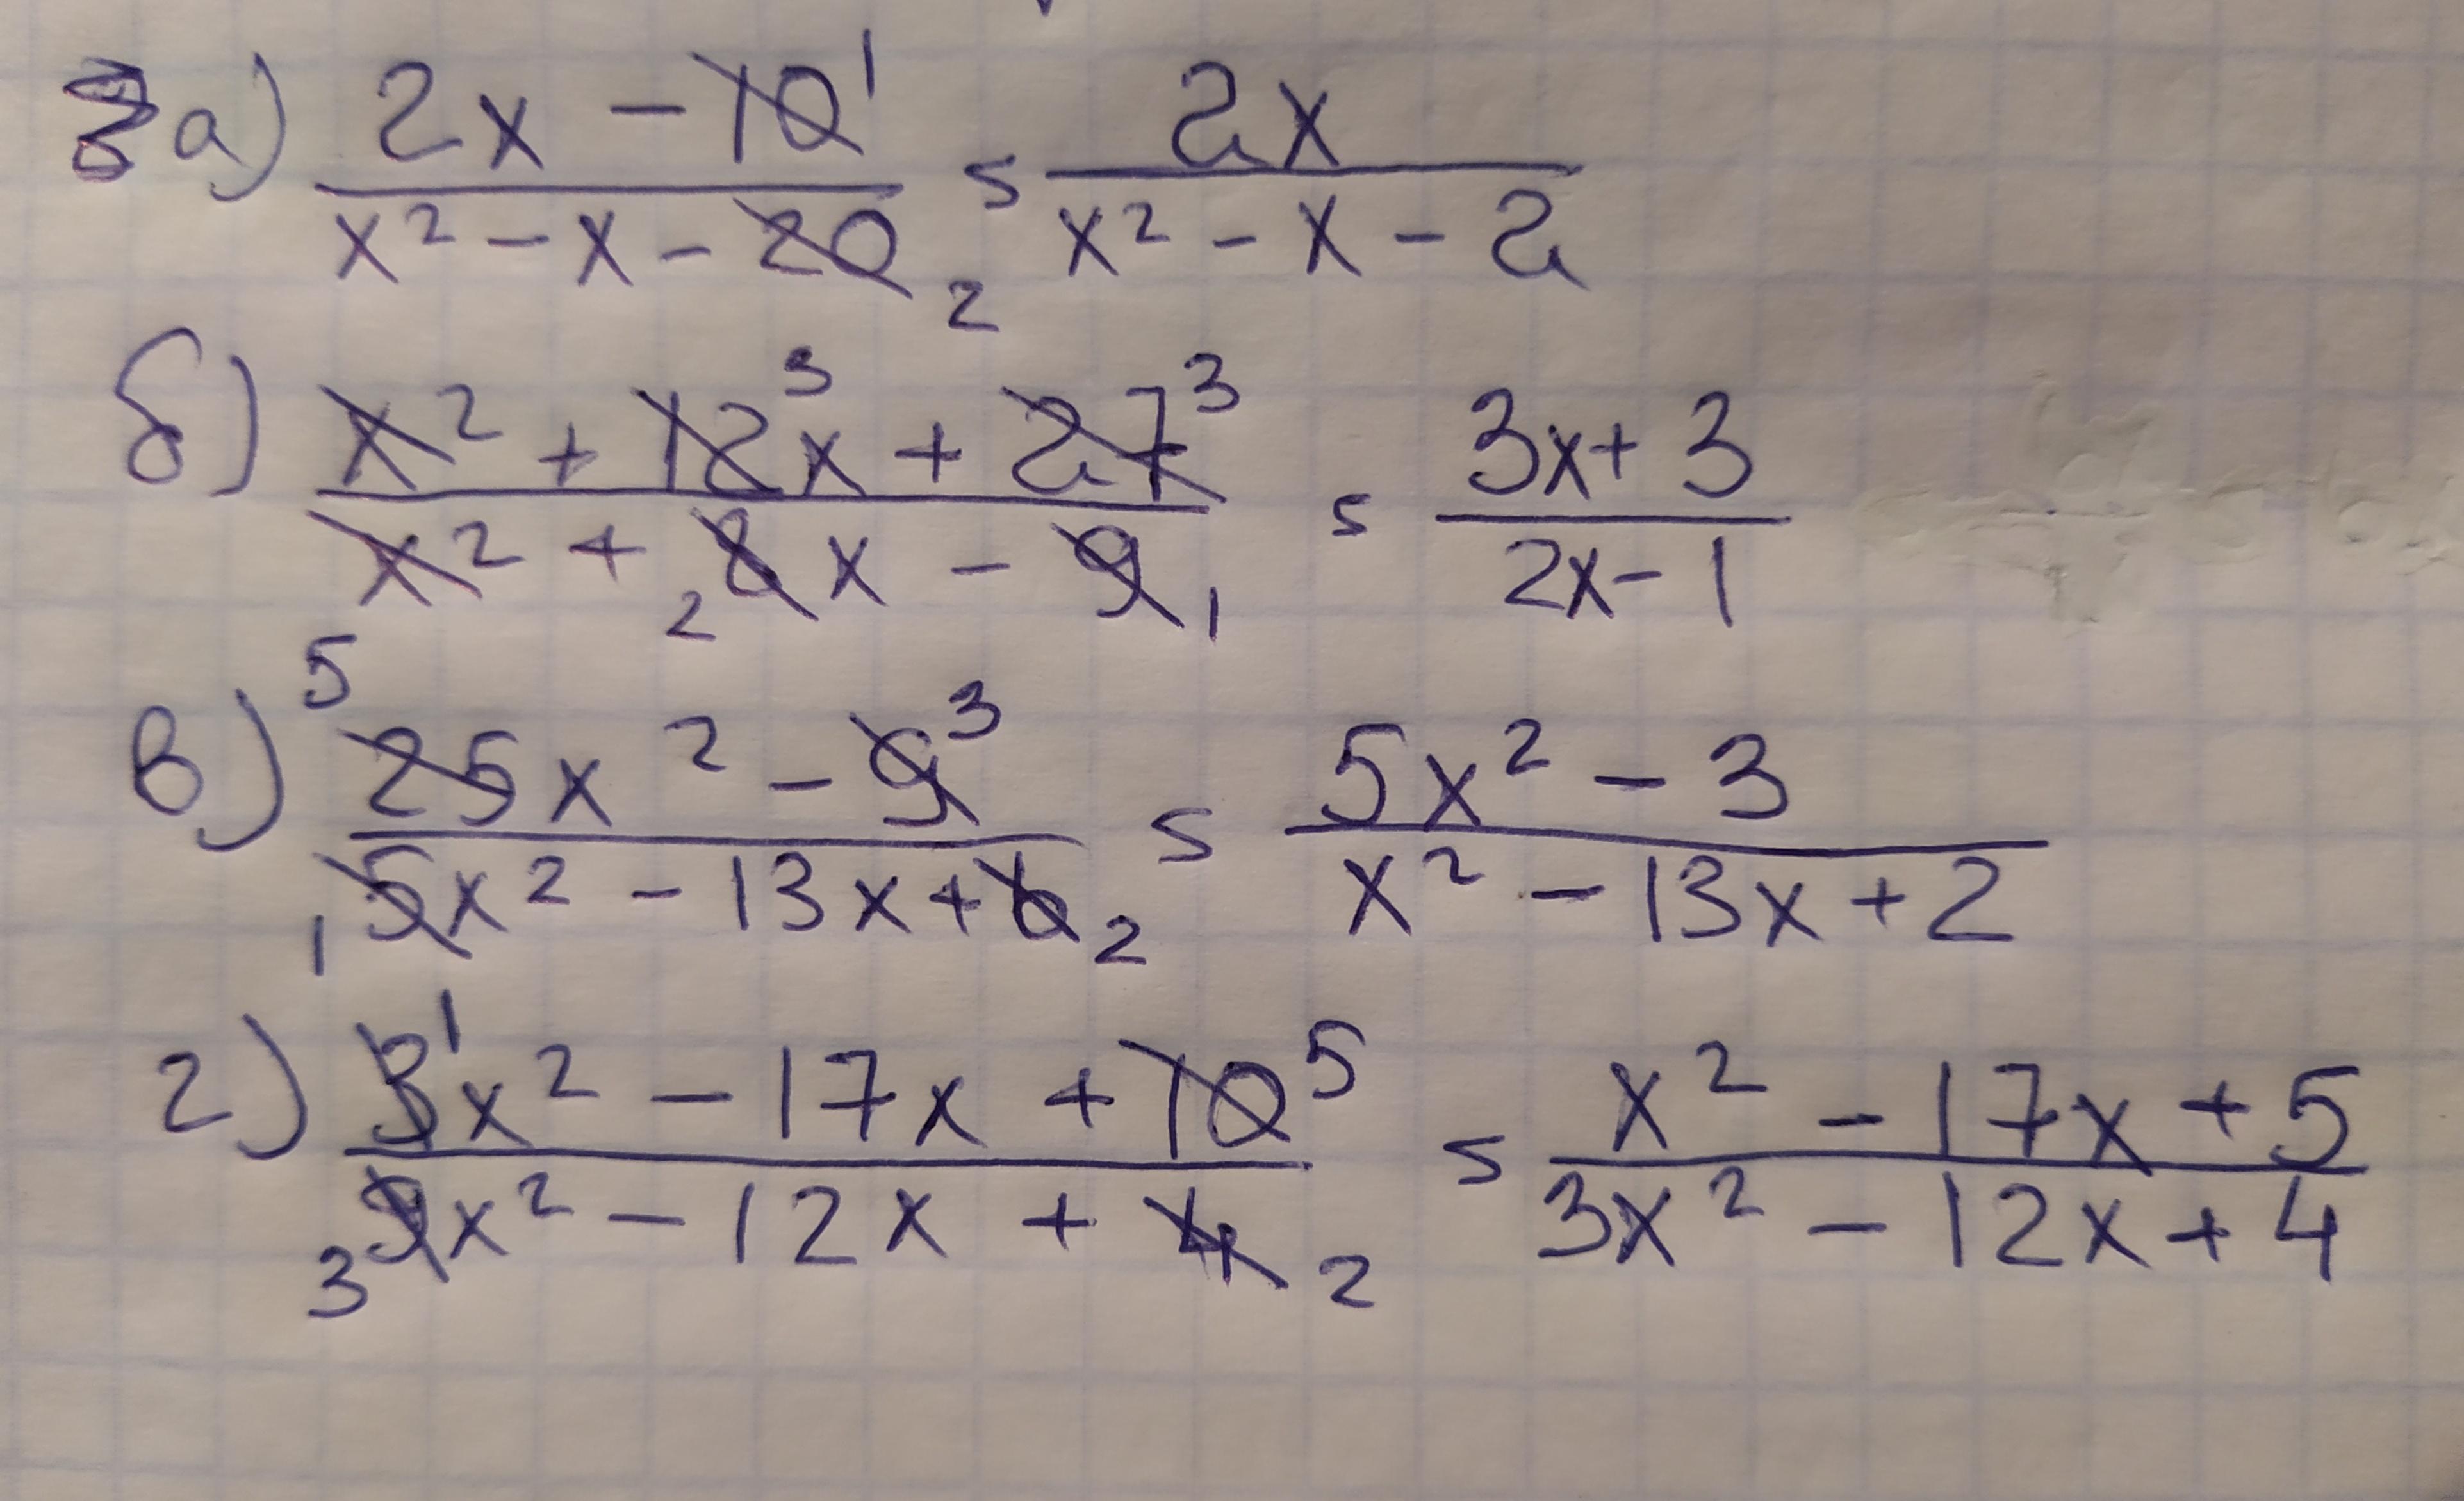 3а) (2x - 10 ¹)/(x² - x - 20 ₂) = 2x/(x² - x - 2)
б) (x² + 12 ³ x + 27 ³)/(x² + ₂ 8x - 9 ₁) = (3x + 3)/(2x - 1)
в) (⁵ 25x² - 9 ³)/(₁ 5x² - 13x + 6 ₂) = (5x² - 3)/(x² - 13x + 2)
г) (3 ¹ x² - 17x + 10 ⁵)/(₃ 9x² - 12x + 4 ₂) = (x² - 17x + 5)/(3x² - 12x + 4)